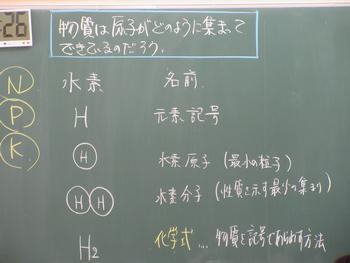 26
物質は原子がどのように集まって
できているのだろう。
N
P
K
水素 名前
H 元素記号
H 水素原子(最小の粒子)
H H 水素分子(性質を示す最小の集まり)
H2 化学式… 物質を記号であらわす方法